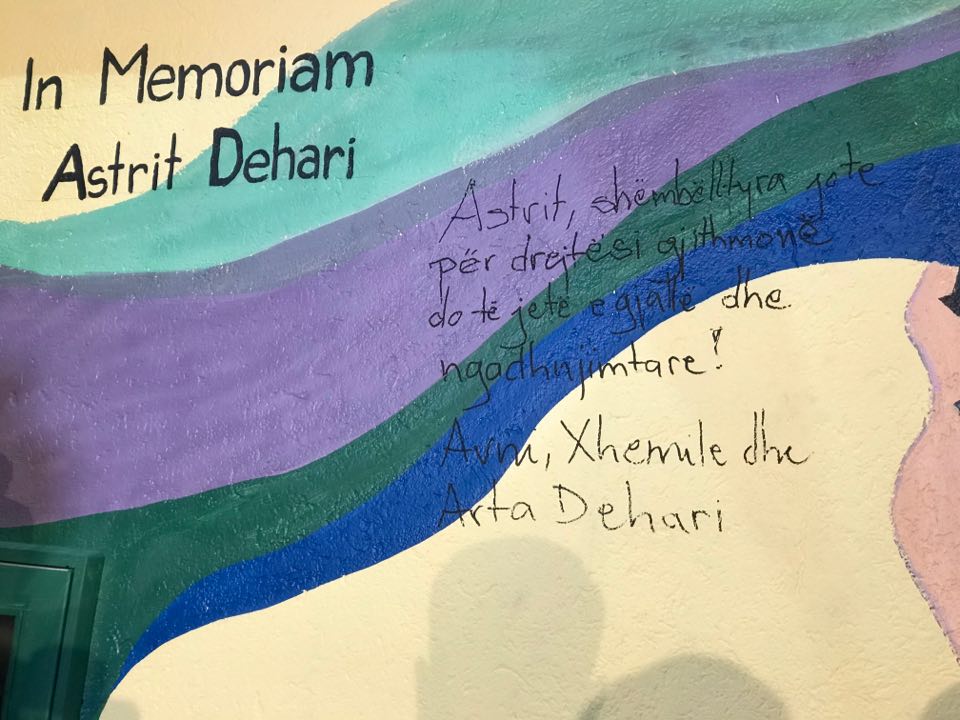 In Memoriam
Astrit Dehari
Astrit, shëmbëlltyra jote
për drejtësi gjithmonë
do të jetë e gjallë dhe
ngadhnjimtare!
Avni, Xhemile dhe
Arta Dehari